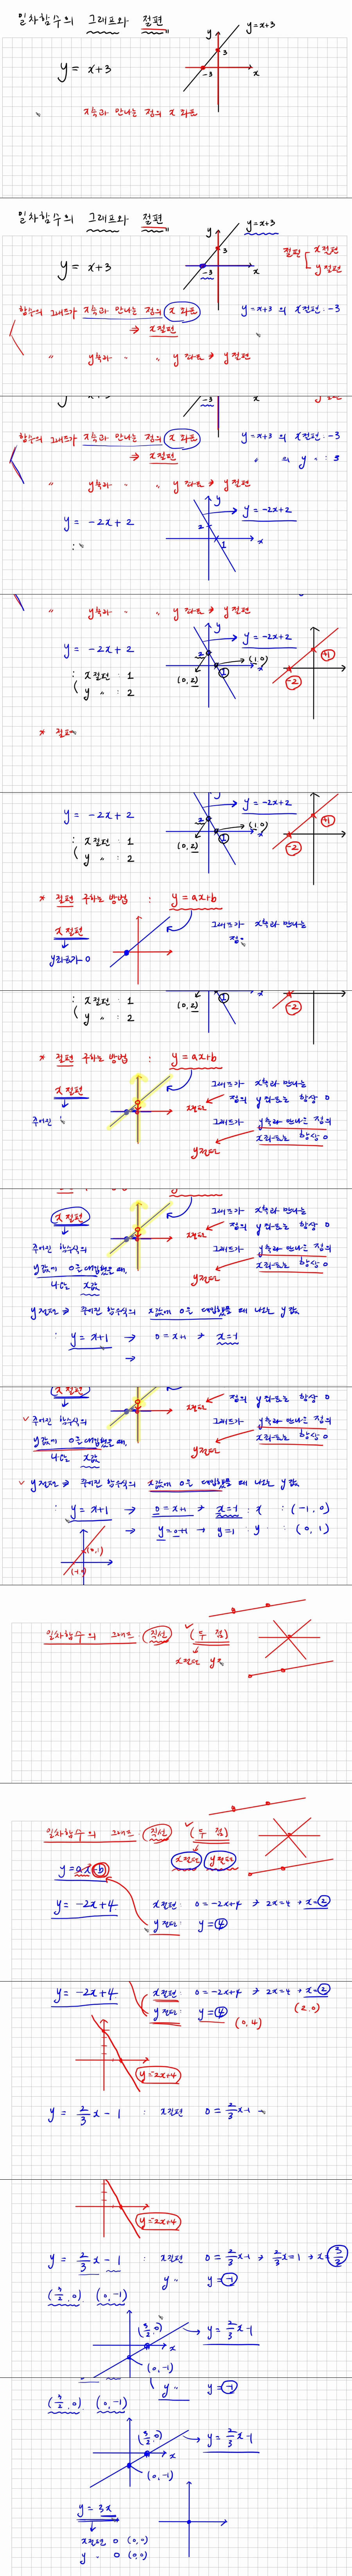 일차함수의 그래프와 절편"
y = x+3
y
y=x+3
3
-3
x
x축과 만나는 점의 x좌표
일차함수의 그래프와 절편"
y = x+3
y
y=x+3
3
-3
x
절편 x절편
y절편
함수의 그래프가 x축과 만나는 점의 x좌표
→ x절편
y=x+3 의 x절편 : -3
" y축과 " " y좌표 → y절편
-3
x
함수의 그래프가 x축과 만나는 점의 x좌표
→ x절편
y=x+3 의 x절편 : -3
" 의 y " : 3
" y축과 " " y좌표 → y절편
y = -2x+2
:
y
y=-2x+2
2
1
x
" y축과 " " y좌표 → y절편
y = -2x+2
: x절편 : 1
y " : 2
y
y=-2x+2
2
(1,0)
(0,2)
1
x
+1
-2
* 절편
y = -2x+2
: x절편 : 1
y " : 2
y
y=-2x+2
2
(1,0)
(0,2)
1
x
+1
-2
* 절편 구하는 방법 : y=ax+b
x절편
y좌표가 0
그래프가 x축과 만나는
점
: x절편 : 1
y " : 2
(0,2)
1
-2
* 절편 구하는 방법 : y=ax+b
x절편
주어진
그래프가 x축과 만나는
x절편 점의 y좌표는 항상 0
그래프가 y축과 만나는 점의
y절편 x좌표는 항상 0
x절편
주어진 함수식의
y값에 0을 대입했을 때,
나오는 x값
그래프가 x축과 만나는
x절편 점의 y좌표는 항상 0
그래프가 y축과 만나는 점의
y절편 x좌표는 항상 0
y절편 → 주어진 함수식의 x값에 0을 대입했을 때 나오는 y값
: y=x+1 → 0=x+1 → x=-1
→
x절편
주어진 함수식의
y값에 0을 대입했을 때,
나오는 x값
x절편 점의 y좌표는 항상 0
그래프가 y축과 만나는 점의
y절편 x좌표는 항상 0
y절편 → 주어진 함수식의 x값에 0을 대입했을 때 나오는 y값
: y=x+1 → 0=x+1 → x=-1 : x : (-1, 0)
→ y=0+1 → y=1 : y : (0, 1)
(0,1)
(-1,0)
일차함수의 그래프 (직선) (두 점)
x절편 y절
일차함수의 그래프 (직선) (두 점)
x절편 y절편
y=ax+b
y=-2x+4
x절편 : 0=-2x+4 → 2x=4 → x=2
y절편 : y=4
y=-2x+4
x절편 : 0=-2x+4 → 2x=4 → x=2
y절편 : y=4
(2,0)
(0,4)
y=-2x+4
y = 2/3 x - 1 : x절편 0 = 2/3 x-1
y=-2x+4
y = 2/3 x - 1 : x절편 0 = 2/3 x-1 → 2/3 x=1 → x=3/2
y " y=-1
(3/2, 0) (0,-1)
(3/2, 0)
y = 2/3 x-1
x
(0,-1)
y " y=-1
(3/2, 0) (0,-1)
(3/2, 0)
y = 2/3 x-1
x
(0,-1)
y = 3x
x절편 0 (0,0)
y " 0 (0,0)